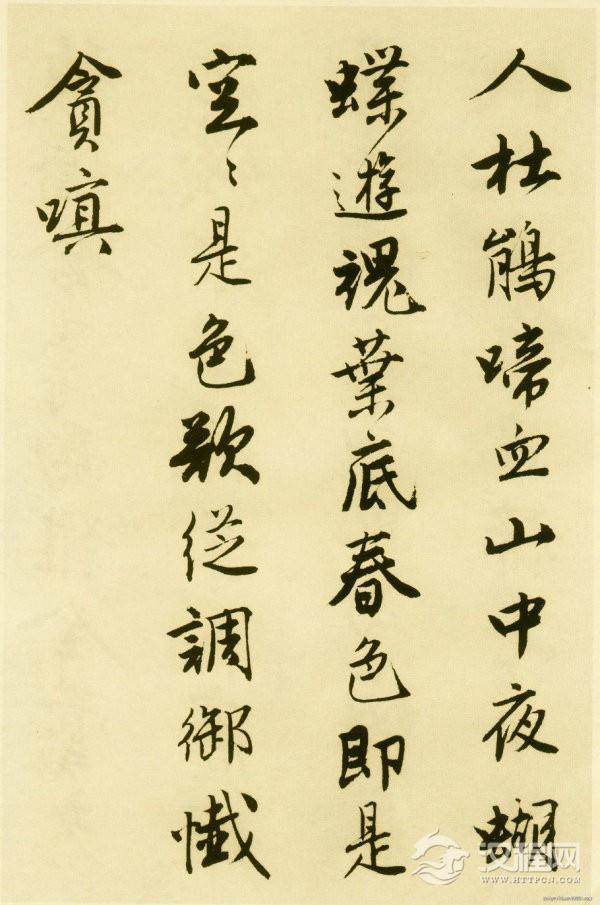 人杜鵑啼血山中夜蝴
蝶遊魂葉底春色即是
空〻是色欲從調御懺
貪嗔
汉程网
WWW.HTTPCN.COM